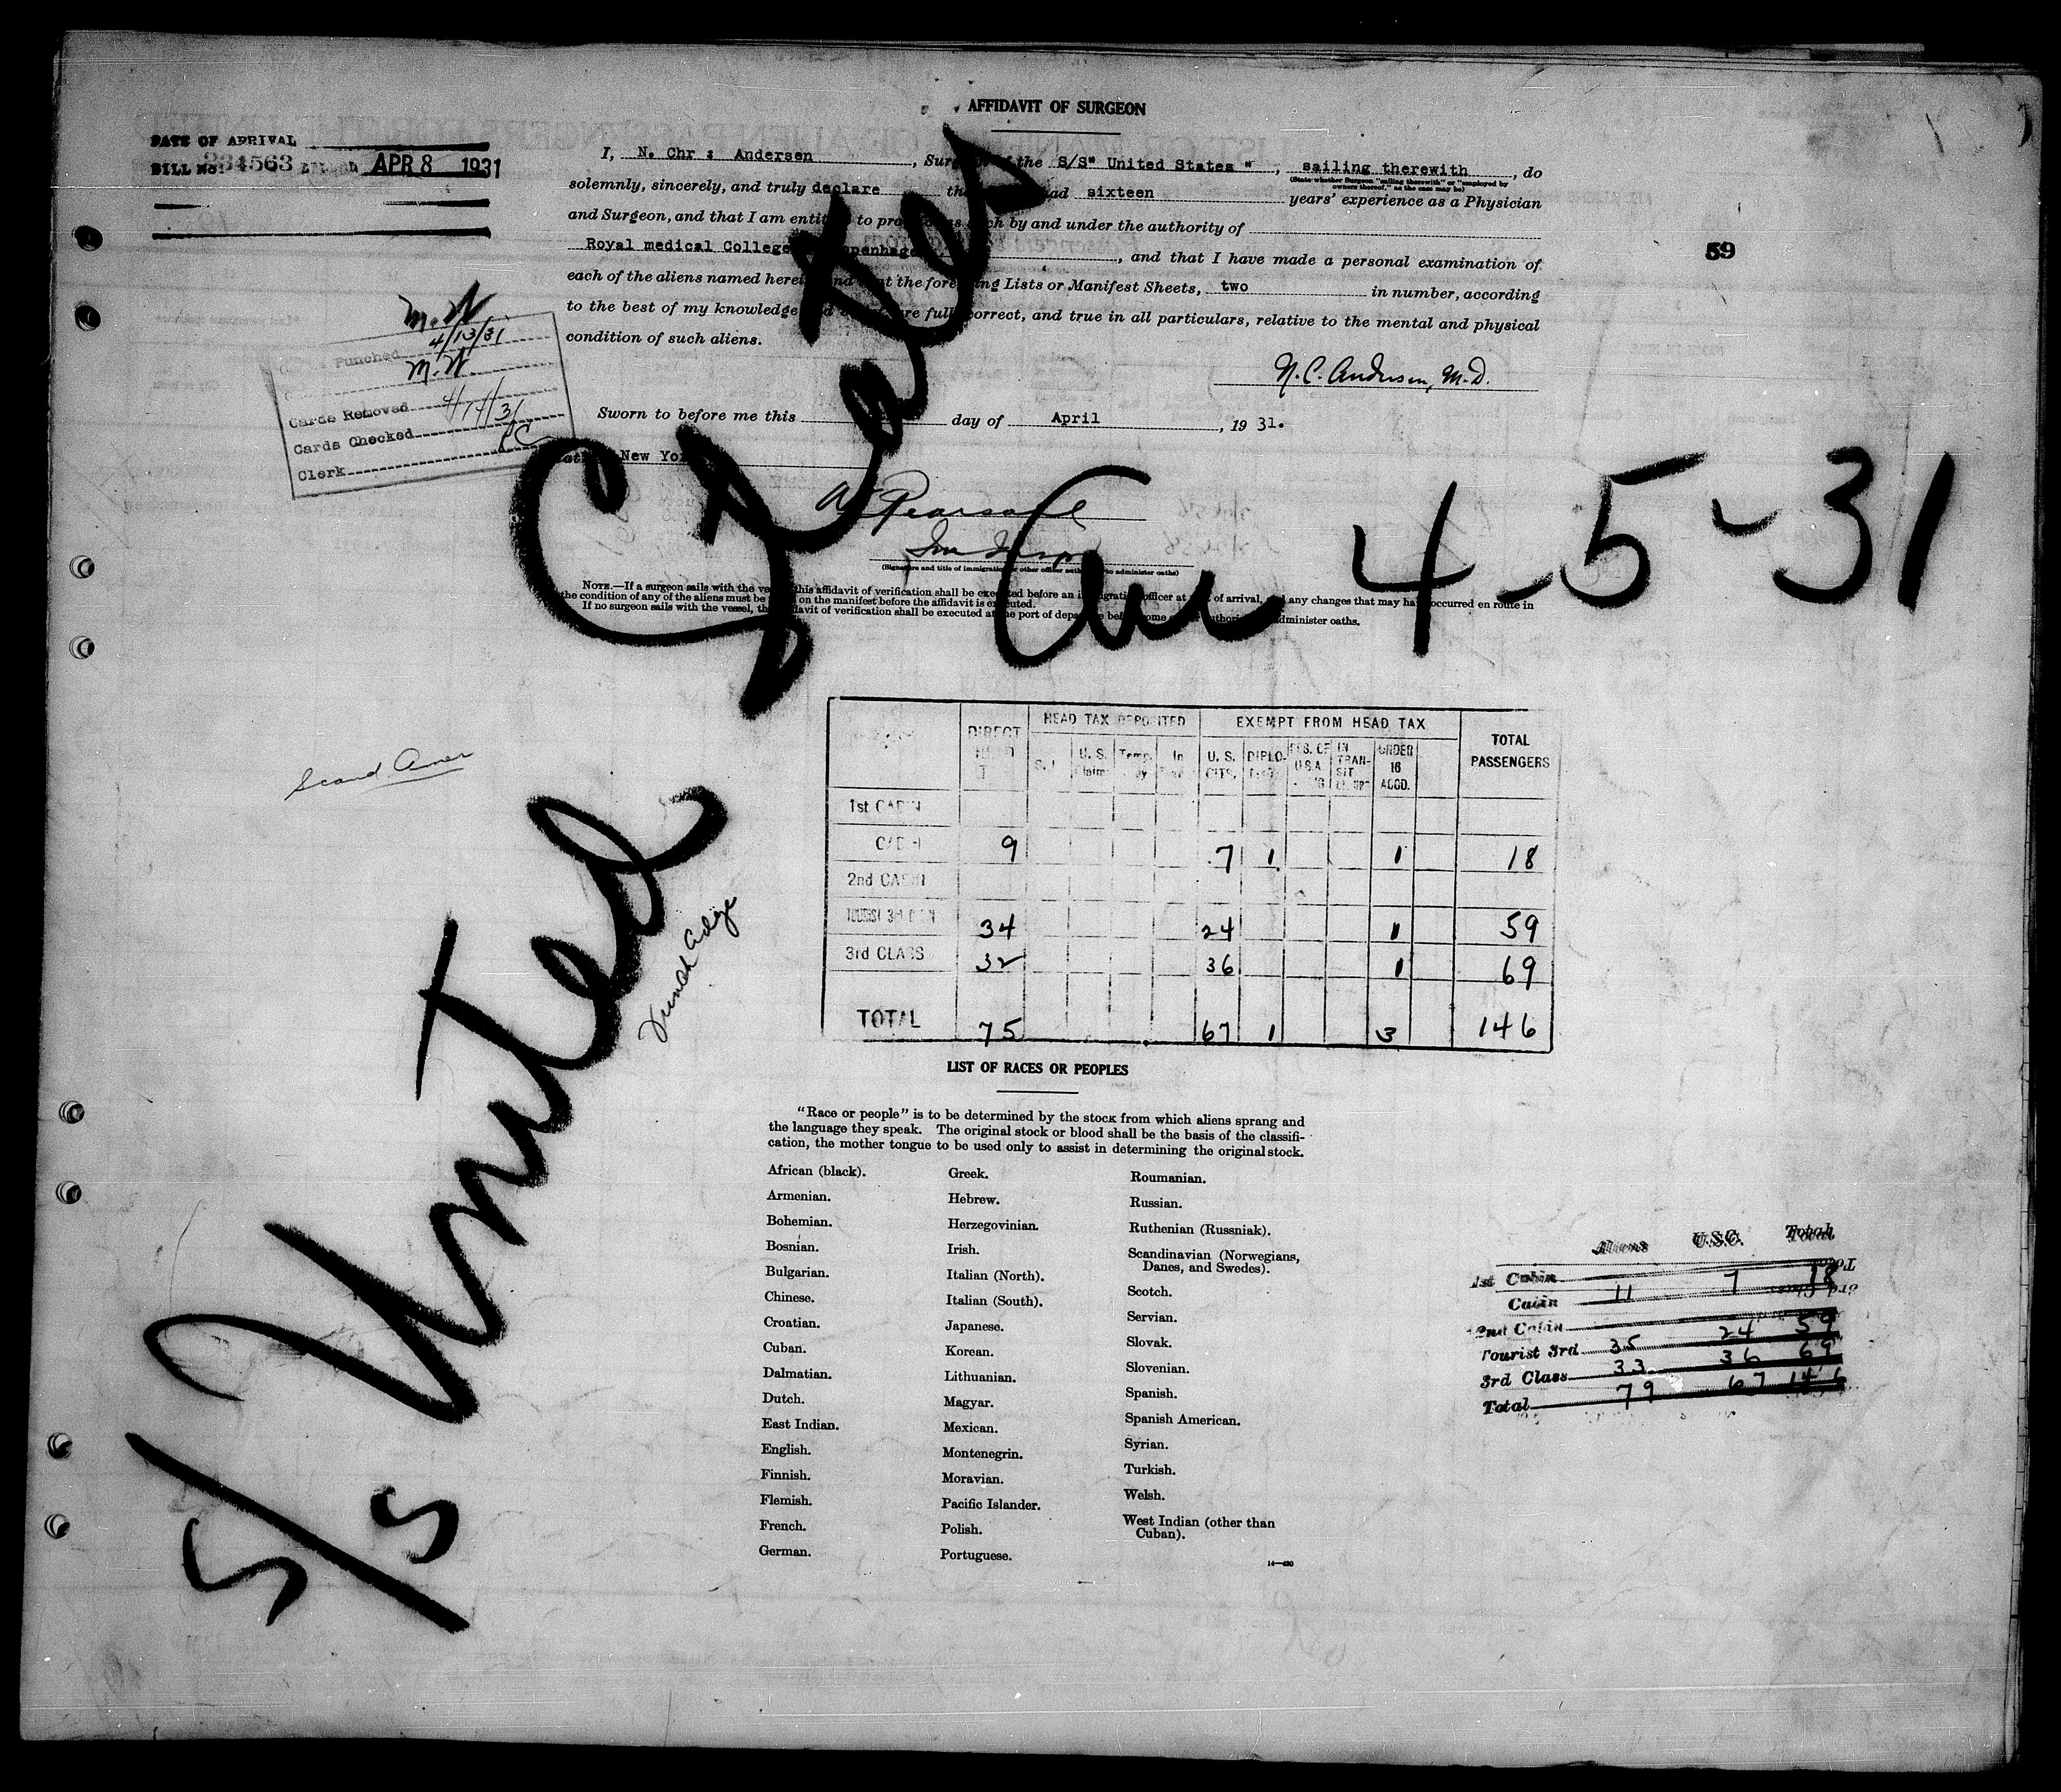 AFFIDAVIT OF SURGEON
DATE OF ARRIVAL
BILL No. 334563 APR 8 1931
I, N. Chr : Andersen, Surgeon of the S/S" United States ", sailing therewith, do
(State whether Surgeon "sailing therewith" or "employed by
owners thereof," as the case may be)
solemnly, sincerely, and truly declare had sixteen years' experience as a Physician
and Surgeon, and that I am entitled to practice as such by and under the authority of
Royal medical College Copenhagen, and that I have made a personal examination of
each of the aliens named herein and that the foregoing Lists or Manifest Sheets, two in number, according
to the best of my knowledge and are full, correct, and true in all particulars, relative to the mental and physical
condition of such aliens.
59
M. W
4/13/31
Punched
M. W.
Cards Removed 4/14/31
Cards Checked
Clerk
N. C. Andersen, M.D.
Sworn to before me this day of April, 1931.
at New York
Pearsall
(Signature and title of immigration or other officer authorized to administer oaths)
NOTE.—If a surgeon sails with the vessel, this affidavit of verification shall be executed before an immigration officer at port of arrival, and any changes that may have occurred en route in
the condition of any of the aliens must be on the manifest before the affidavit is executed.
If no surgeon sails with the vessel, the affidavit of verification shall be executed at the port of departure before some authorized to administer oaths.
S/S United States
Arr 4-5-31
Scand Amer
DIRECT HEAD TAX DEPOSITED EXEMPT FROM HEAD TAX TOTAL PASSENGERS
U. S. Claim Temp. In U. S. CITS. DIPLO. RES. OF U.S.A. IN TRANSIT UNDER 16 ACCD.
1st CABIN
CABIN 9 7 1 1 18
2nd CABIN
TOURIST 3rd CABIN 34 24 1 59
3rd CLASS 32 36 1 69
TOTAL 75 67 1 3 146
LIST OF RACES OR PEOPLES
"Race or people" is to be determined by the stock from which aliens sprang and
the language they speak. The original stock or blood shall be the basis of the classifi-
cation, the mother tongue to be used only to assist in determining the original stock.
African (black).
Armenian.
Bohemian.
Bosnian.
Bulgarian.
Chinese.
Croatian.
Cuban.
Dalmatian.
Dutch.
East Indian.
English.
Finnish.
Flemish.
French.
German.
Greek.
Hebrew.
Herzegovinian.
Irish.
Italian (North).
Italian (South).
Japanese.
Korean.
Lithuanian.
Magyar.
Mexican.
Montenegrin.
Moravian.
Pacific Islander.
Polish.
Portuguese.
Roumanian.
Russian.
Ruthenian (Russniak).
Scandinavian (Norwegians,
Danes, and Swedes).
Scotch.
Servian.
Slovak.
Slovenian.
Spanish.
Spanish American.
Syrian.
Turkish.
Welsh.
West Indian (other than
Cuban).
14—430
Aliens U.S.C. Total
1st Cabin
Cabin 11 7 18
2nd Cabin
Tourist 3rd 35 24 59
3rd Class 33 36 69
Total 79 67 146